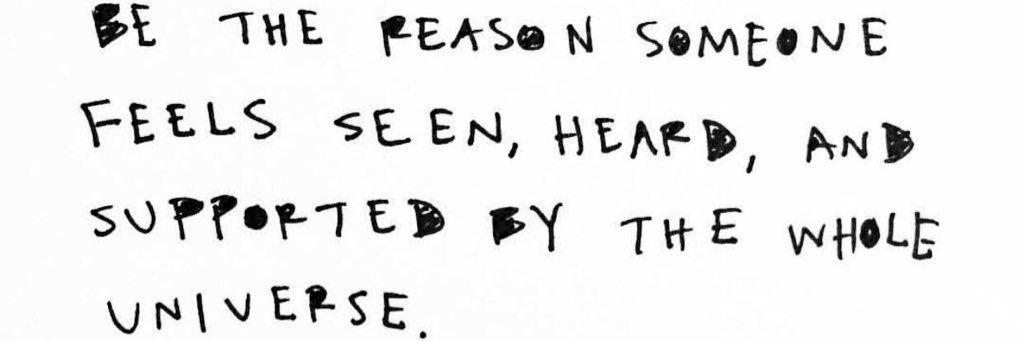 BE THE REASON SOMEONE
FEELS SEEN, HEARD, AND
SUPPORTED BY THE WHOLE
UNIVERSE.